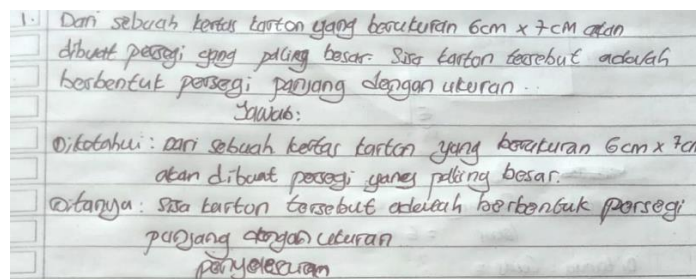 1. Dari sebuah kertas karton yang berukuran 6cm x 7cm akan
dibuat persegi yang paling besar. Sisa karton tersebut adalah
berbentuk persegi panjang dengan ukuran ..
Jawab:
Diketahui: Dari sebuah kertas karton yang berukuran 6cm x 7cm
akan dibuat persegi yang paling besar.
Ditanya: Sisa karton tersebut adalah berbentuk persegi
panjang dengan ukuran
penyelesaian